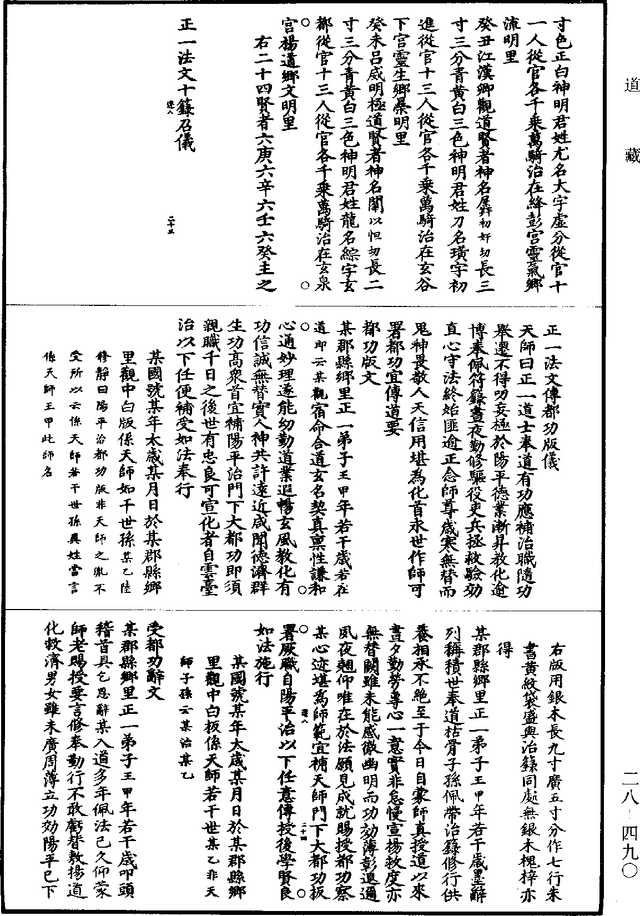 道藏
寸色正白神明君姓尤名大字虛分從官十
一人從官各千乘萬騎治在絳彭宮靈氣鄉
流明里
癸丑江漢鄉觀道賢者神名孱初奸切長三
寸三分青黃白三色神明君姓刀名璜字初
進從官十三人從官各千乘萬騎治在玄谷
下宮靈生鄉暴明里
癸未呂威明極道賢者神名闡以怛切長二
寸三分青黃白三色神明君姓龍名綜字玄
都從官十三人從官各千乘萬騎治在玄泉
宮楊道鄉文明里
右二十四賢者六庚六辛六壬六癸主之
正一法文十籙召儀
逹八
二十三
正一法文傳都功版儀
天師曰正一道士奉道有功應補治職隨功
舉遷不得叨妄極於陽平德業漸昇教化逾
博奉佩符籙晝夜勤修驅役吏兵拯救驗効
直心守法終始匪逾正念師尊歲寒無替而
鬼神畏敬人天信用堪為化首永世作師可
署都功宜傳道要
都功版文
某郡縣鄉里正一弟子王甲年若干歲若在
道即云某觀宿命合道玄名契真稟性謙和
心通妙理遂能幼勤道業遐暢玄風教化有
功信誠無替實人神共許遠近咸聞德濟群
生功高衆首宜補陽平治門下大都功即須
親職千日之後世有忠良可宣化者自雲臺
治以下任便補受如法奉行
某國號某年太歲某月日於某郡縣鄉
里觀中白版係天師如干世孫某乙陸
修靜曰陽平治都功版非天師之胤不
受所以云係天師若干世孫具姓當言
係天師王甲此師名
右版用銀木長九寸廣五寸分作七行朱
書黃紋袋盛與治籙同處無銀木槐梓亦
得
某郡縣鄉里正一弟子王甲年若干歲墨辭
列稱積世奉道枯骨子孫佩帶治籙修行供
養相承不絕至于今日自蒙師真授道以來
晝夕勤勞專心一意實非怠慢宣揚教度亦
無替闕雖未能感徹幽明而功効薄彭退過
夙夜翹仰唯在於法願見成就賜授都功察
某心迹堪為師範宜補天師門下大都功版
署厥職自陽平治以下任意傳授後學賢良
如法施行
逹八
二十四
某國號某年太歲某月日於某郡縣鄉
里觀中白板係天師若干世某乙非天
師子孫云某治某乙
受都功辭文
某郡縣鄉里正一弟子王甲年若干歲叩頭
稽首具乞恩辭某入道多年佩法已久仰蒙
師老賜授要言修奉勤行不敢虧替敷揚道
化救濟男女雖未廣周薄立功効陽平已下
二八—四九〇